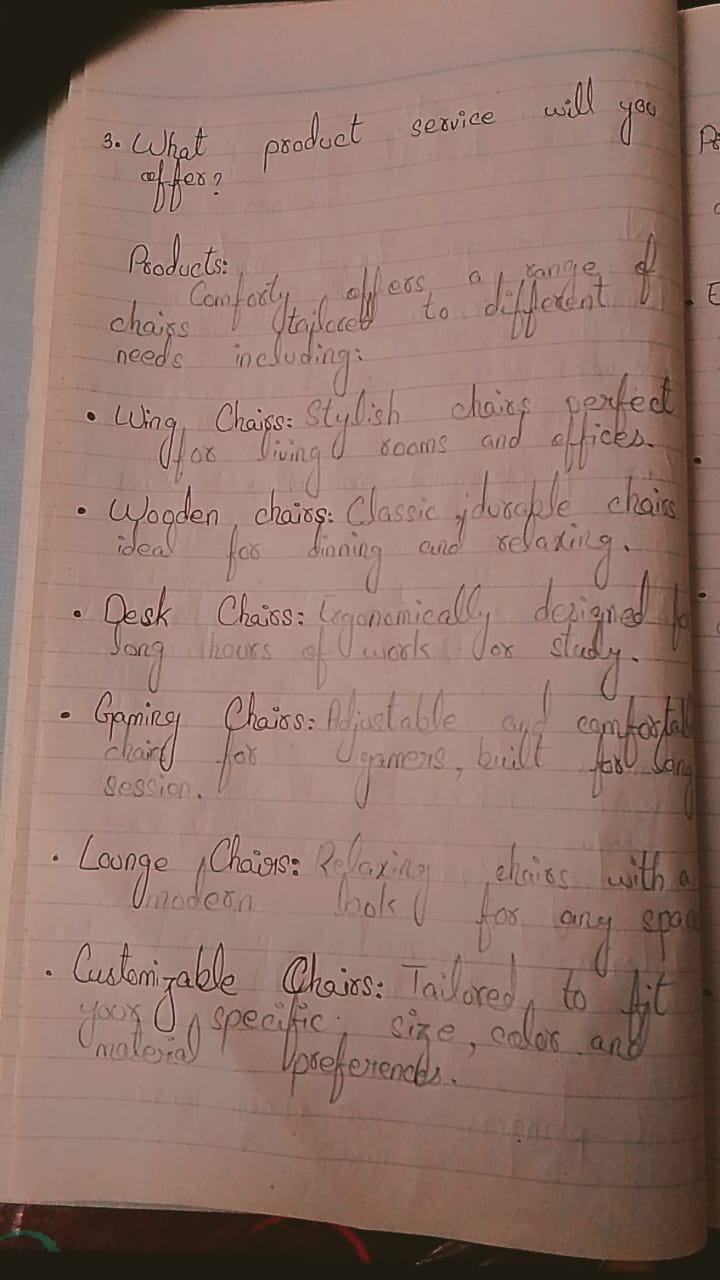 3. What product service will you
offer?
Products:
Comforty offers a range of
chairs tailored to different
needs including:
• Wing Chairs: Stylish chairs perfect
for living rooms and offices.
• Wooden chairs: Classic, durable chairs
ideal for dinning and relaxing.
• Desk Chairs: Ergonomically designed
long hours of work or study.
• Gaming Chairs: Adjustable and comfortabl
chairs for gamers, built for long
session.
• Lounge Chairs: Relaxing chairs with a
modern look for any spac
• Customizable Chairs: Tailored to fit
your specific size, color and
material preferences.